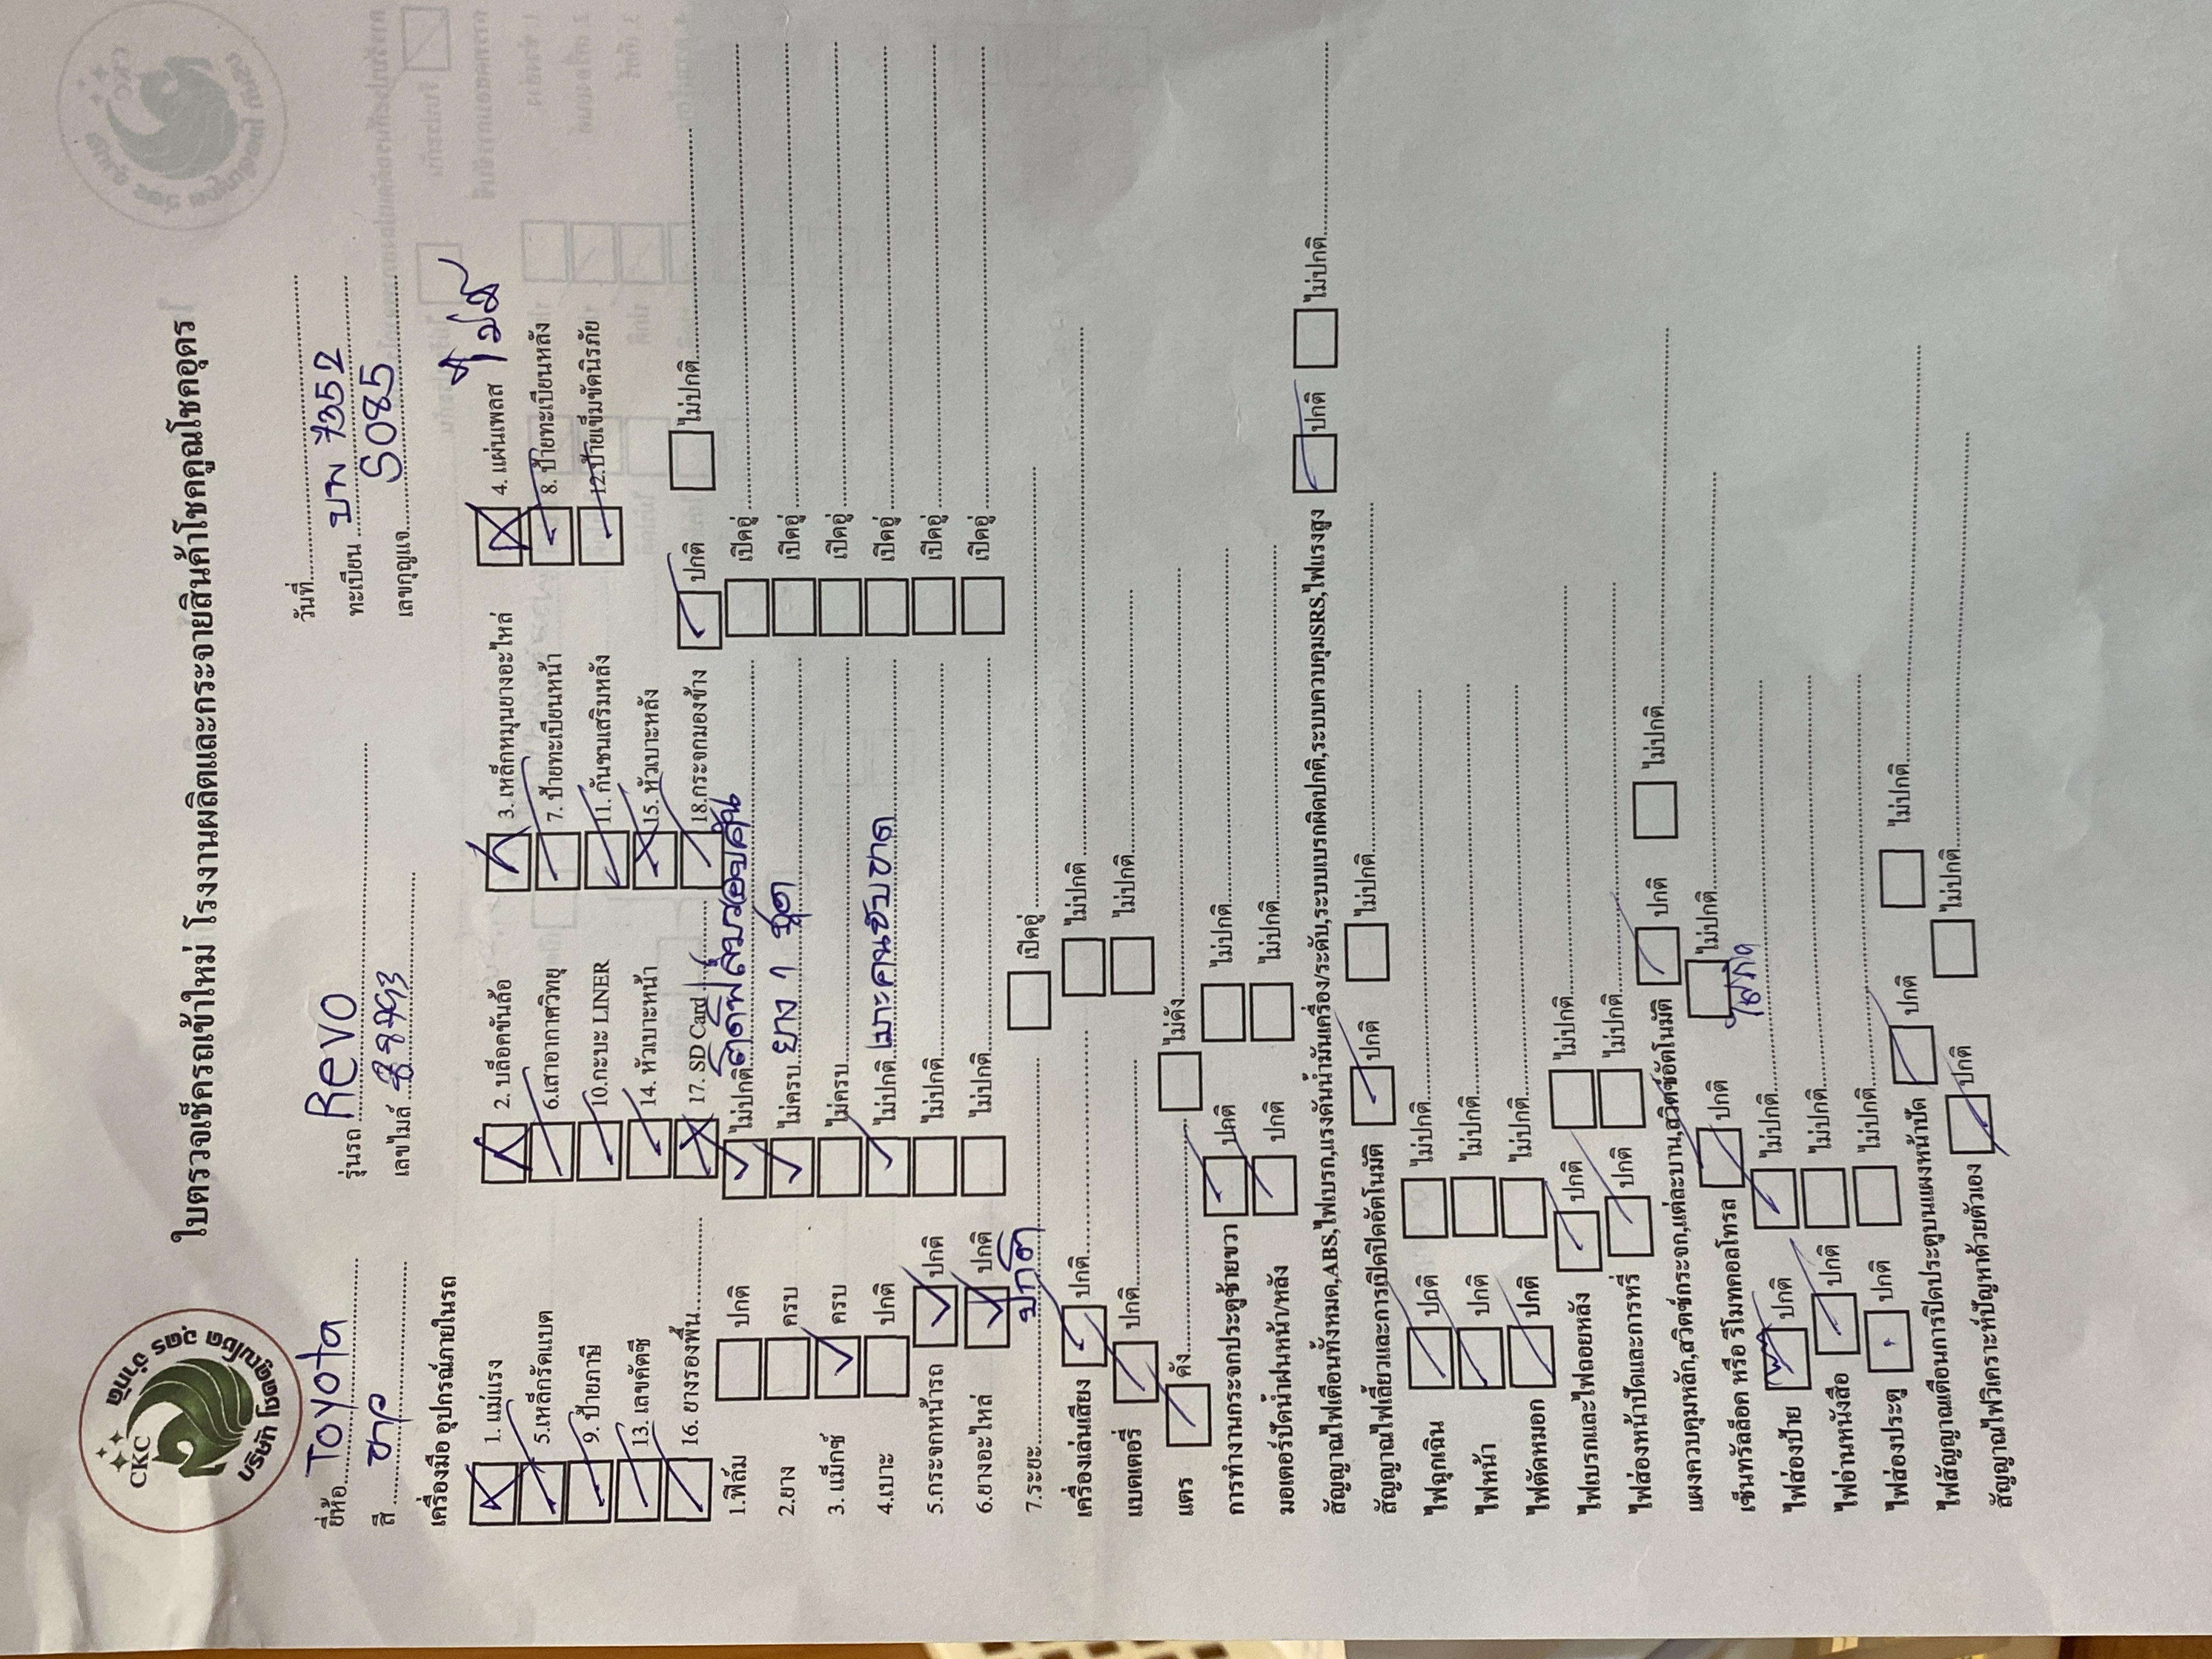 CKC
บริษัท โชคคูณโชค อุดร จำกัด
ใบตรวจเช็ครถเข้าใหม่ โรงงานผลิตและกระจายสินค้าโชคคูณโชคอุดร
วันที่
ยี่ห้อ Toyota รุ่นรถ Revo ทะเบียน 7352
สี เลขไมล์ เลขกุญแจ S085
เครื่องมือ อุปกรณ์ภายในรถ
1. แม่แรง 2. บล็อคขันล้อ 3. เหล็กหมุนยางอะไหล่ 4. แผ่นเพลส
5.เหล็กรัดแบต 6.เสาอากาศวิทยุ 7. ป้ายทะเบียนหน้า 8. ป้ายทะเบียนหลัง
9. ป้ายภาษี 10.กะบะ LINER 11. กันชนเสริมหลัง 12.ป้ายเข็มขัดนิรภัย
13. เลขคัตซี 14. หัวเบาะหน้า 15. หัวเบาะหลัง
16. ยางรองพื้น 17. SD Card 18.กระจกมองข้าง ปกติ ไม่ปกติ
1.ฟิล์ม ปกติ ไม่ปกติ เปิดอู่
2.ยาง ครบ ไม่ครบ ยาง 1 ชุด เปิดอู่
3. แม็กซ์ ครบ ไม่ครบ เปิดอู่
4.เบาะ ปกติ ไม่ปกติ เบาะคนขับขาด เปิดอู่
5.กระจกหน้ารถ ปกติ ไม่ปกติ เปิดอู่
6.ยางอะไหล่ ปกติ ไม่ปกติ เปิดอู่
7.ระยะ ปกติ เปิดอู่
เครื่องเล่นเสียง ปกติ ไม่ปกติ
แบตเตอรี่ ปกติ ไม่ปกติ
แตร ดัง ไม่ดัง
การทำงานกระจกประตูซ้ายขวา ปกติ ไม่ปกติ
มอเตอร์ปัดน้ำฝนหน้า/หลัง ปกติ ไม่ปกติ
สัญญาณไฟเตือนทั้งหมด,ABS,ไฟเบรก,แรงดันน้ำมันเครื่อง/ระดับ,ระบบเบรกผิดปกติ,ระบบควบคุมSRS,ไฟแรงสูง ปกติ ไม่ปกติ
สัญญาณไฟเลี้ยวและการเปิดปิดอัตโนมัติ ปกติ ไม่ปกติ
ไฟฉุกเฉิน ปกติ ไม่ปกติ
ไฟหน้า ปกติ ไม่ปกติ
ไฟตัดหมอก ปกติ ไม่ปกติ
ไฟเบรกและไฟถอยหลัง ปกติ ไม่ปกติ
ไฟส่องหน้าปัดและการหรี่ ปกติ ไม่ปกติ
แผงควบคุมหลัก,สวิตซ์กระจก,แต่ละบาน,สวิตซ์อัตโนมัติ ปกติ ไม่ปกติ
เซ็นทรัลล็อค หรือ รีโมทคอลโทรล ปกติ ไม่ปกติ
ไฟส่องป้าย ปกติ ไม่ปกติ
ไฟอ่านหนังสือ ปกติ ไม่ปกติ
ไฟส่องประตู ปกติ ไม่ปกติ
ไฟสัญญาณเตือนการปิดประตูบนแผงหน้าปัด ปกติ ไม่ปกติ
สัญญาณไฟวิเคราะห์ปัญหาด้วยตัวเอง ปกติ ไม่ปกติ